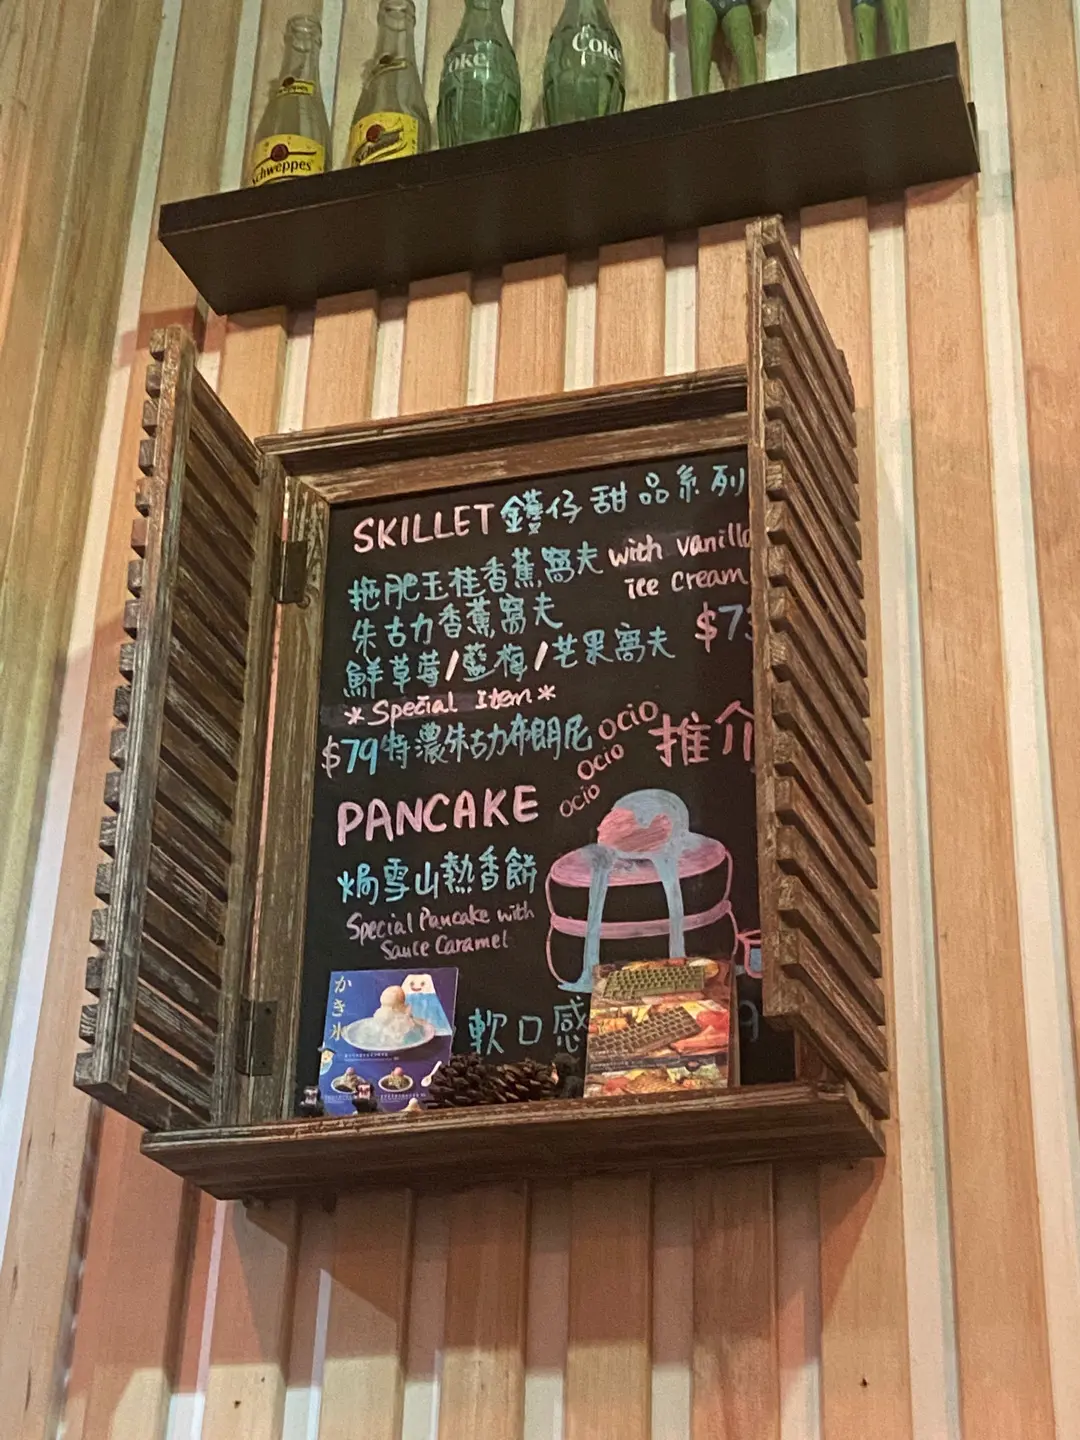 Schweppes
Coke
Coke
SKILLET 鑊仔甜品系列
拖肥玉桂香蕉窩夫 with vanilla
ice cream
朱古力香蕉窩夫
$73
鮮草莓/藍梅/芒果窩夫
*Special Item*
$79特濃朱古力布朗尼
ocio
ocio
ocio
推介
PANCAKE
焗雪山熱香餅
Special Pancake with
Sauce Caramel
軟口感
かき氷